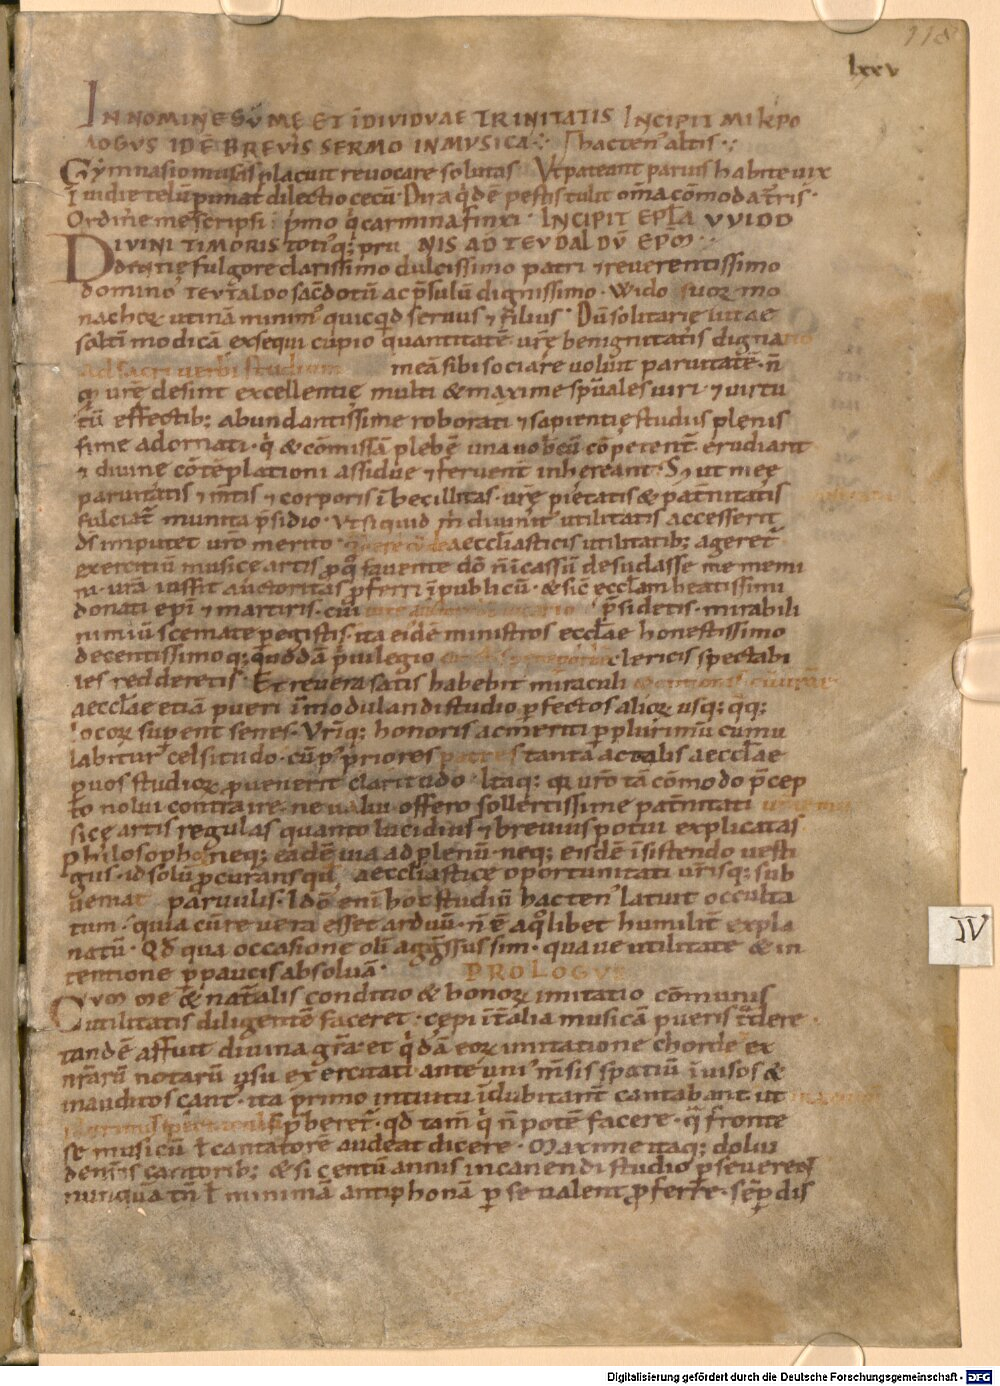 118
lxxv
IN NOMINE SŪMĘ ET IDIVIDVAE TRINITATIS INCIPIT MIKPO
LOGUS ID Ē BREVIS SERMO IN MVSICA hacten' altis
Gymnasio musas placuit revocare solutas Vt pateant parvis habite vix
Ī vidie telū pimat dilectio cecū Dira q̄dē pestis tulit om̄a cōmoda tr̄ris
Ordine me scripsi primo q̄ carmina finxi INCIPIT EPLA VVIDO
DIVINI TIMORIS toti'q; pru NIS AD TEVDALDŪ EPM
dentię fulgore clarissimo dulcissimo patri ⁊ reverentissimo
domino TEVTALDO sac̄dotū ac p̄sulū dignissimo Wido suoꝝ mo
nachoꝝ utinā minim' quicq̄d servus ⁊ filius Dū solitarię vitae
saltī modicā exsequi cupio quantitatē vr̄ę benignitatis dignatio
ad sacri verbi studium meā sibi sociare voluit parvitatē n̄
qꝫ vr̄ę desint excellentię multi & maxime sp̄uales viri ⁊ virtu
tū effectib; abundantissime roborati ⁊ sapientię studiis plenis
sime adornati q̇ & cōmissā plebē una vobcū cōpetent̄ erudiant
⁊ divinę cōteplationi assidue ⁊ fervent̄ inhereant S; ut meę
parvitatis ⁊ m̄tis ⁊ corporis ībecillitas vr̄ę pietatis & pat̄nitatis
fulciat̄ munita p̄sidio Vt siquid m̄ divinit' utilitatis accesserit
ds imputet vr̄o merito aeccliasticis utilitatib; ageret̄
exercitiū musice artis ꝓ q̄ favente dō n̄ īcassū desudasse me memi
ni vr̄a iussit auctoritas ꝓferri ī publicū & sic̄ eccl̄am beatissimi
donati epi ⁊ martiris cui p̄sidetis mirabili
nimiū scemate pegistis ita eidē ministros eccl̄ae honestissimo
decentissimoq; quodā p̄vilegio clericis spectabi
les redderetis Et revera satis habebit miraculi
aeccl̄ae etiā pueri ī modulandi studio ꝑfectos alioꝝ usq; q̄q;
locoꝝ sup̄ent senes Vr̄iq; honoris ac meriti ꝑplurimū cumu
labitur celsitudo cū p' priores patres tanta ac talis aeccl̄ae
ꝑ vos studioꝝ ꝓvenerit claritudo Itaq; qꝫ vr̄o tā cōmodo p̄cep
to nolui contraire ne valui offero sollertissime pat̄nitati
sicę artis regulas quanto lucidius ⁊ brevius potui explicatas
philosophoꝝ neq; eadē via ad plenū neq; eisdē īsistendo vesti
giis id solū ꝓcurans qđ aeccl̄iasticę oportunitati vr̄isq; sub
veniat parvulis Idō enī hoc studiū hacten' latuit occulta
tum quia cū re vera esset arduū n̄ ē aq̄libet humilit̄ expla
natū Qđ qua occasione olī agḡssus sim qua ve utilitate & in
tentione ꝑpaucis absolvā PROLOGVS
Cum me & nat̄alis conditio & bonoꝝ imitatio cōmunis
utilitatis diligentē faceret cępi īt̄ alia musicā pueris t̄dere
tandē affuit divina gr̄a et q̄dā eoꝝ imitatione chorde ex
nr̄arū notarū usu exercitati ante uni' m̄sis spatiū īvisos &
inauditos cant' ita primo intuitu īdubitant̄ cantabant ut
p̄beret̄ qđ tam̄ q̇ n̄ potē facere q̄ fronte
se musicū ł cantatorē audeat dicere Maxime itaq; dolui
de nr̄is cantorib; & si centū annis in canendi studio ꝑseverent
nunquā tn̄ ł minimā antiphonā ꝑ se valent ꝓferre sēp dis
IV
Digitalisierung gefördert durch die Deutsche Forschungsgemeinschaft - DFG